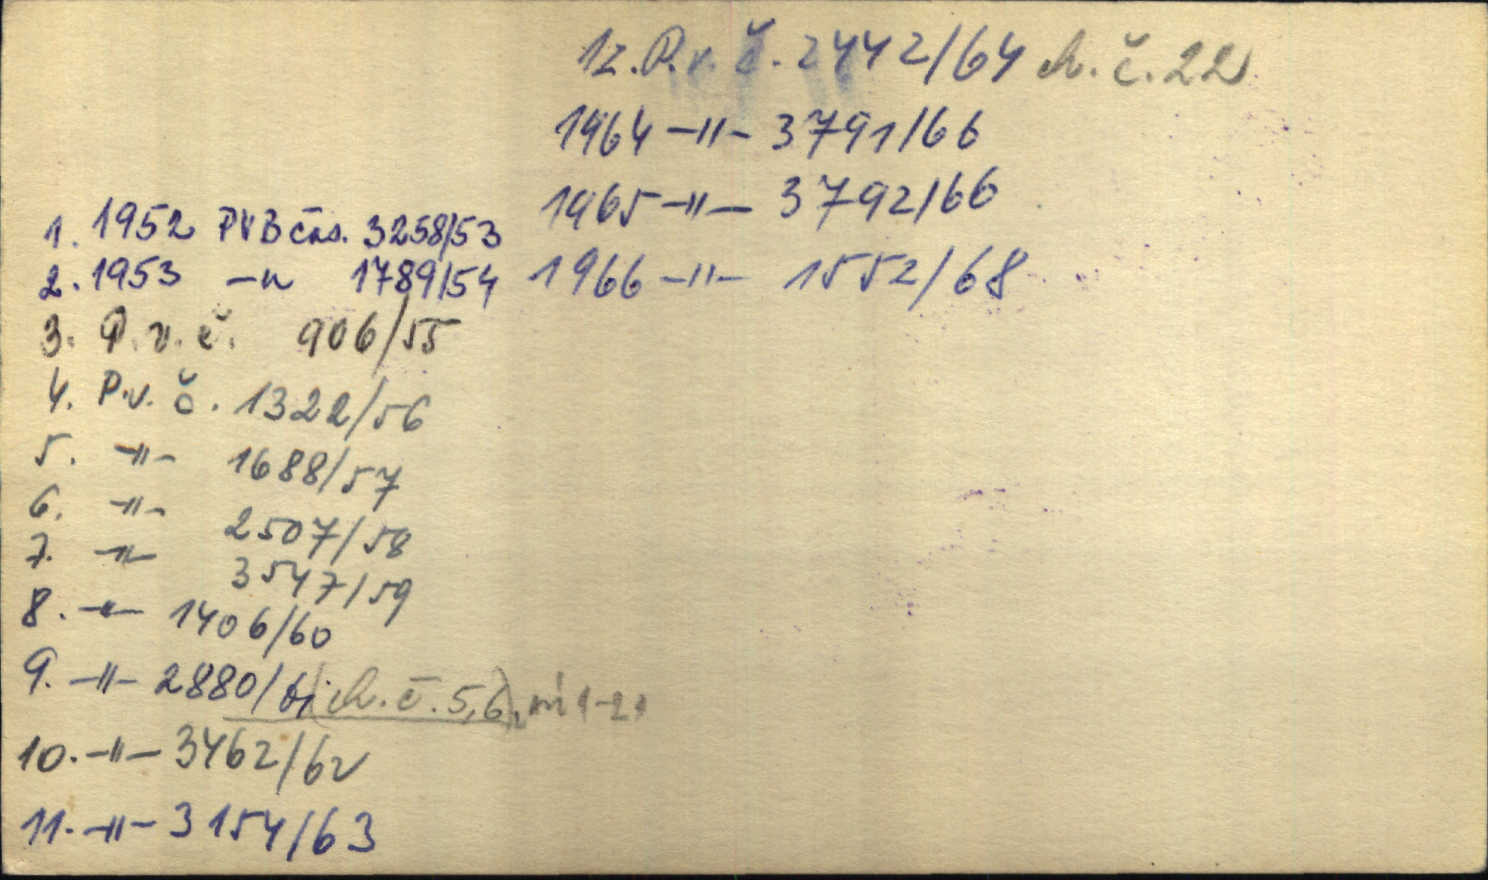 1. 1952 PVB čas. 3258/53
2. 1953 -"- 1789/54
3. P.v.č. 906/55
4. P.v.č. 1322/56
5. -"- 1688/57
6. -"- 2507/58
7. -"- 3547/59
8. -"- 1406/60
9. -"- 2880/61 (ch.č. 5,6),
10. -"- 3462/62
11. -"- 3154/63
12. P.v.č. 2442/64 ch.č. 22
1964 -"- 3791/66
1965 -"- 3792/66
1966 -"- 1552/68